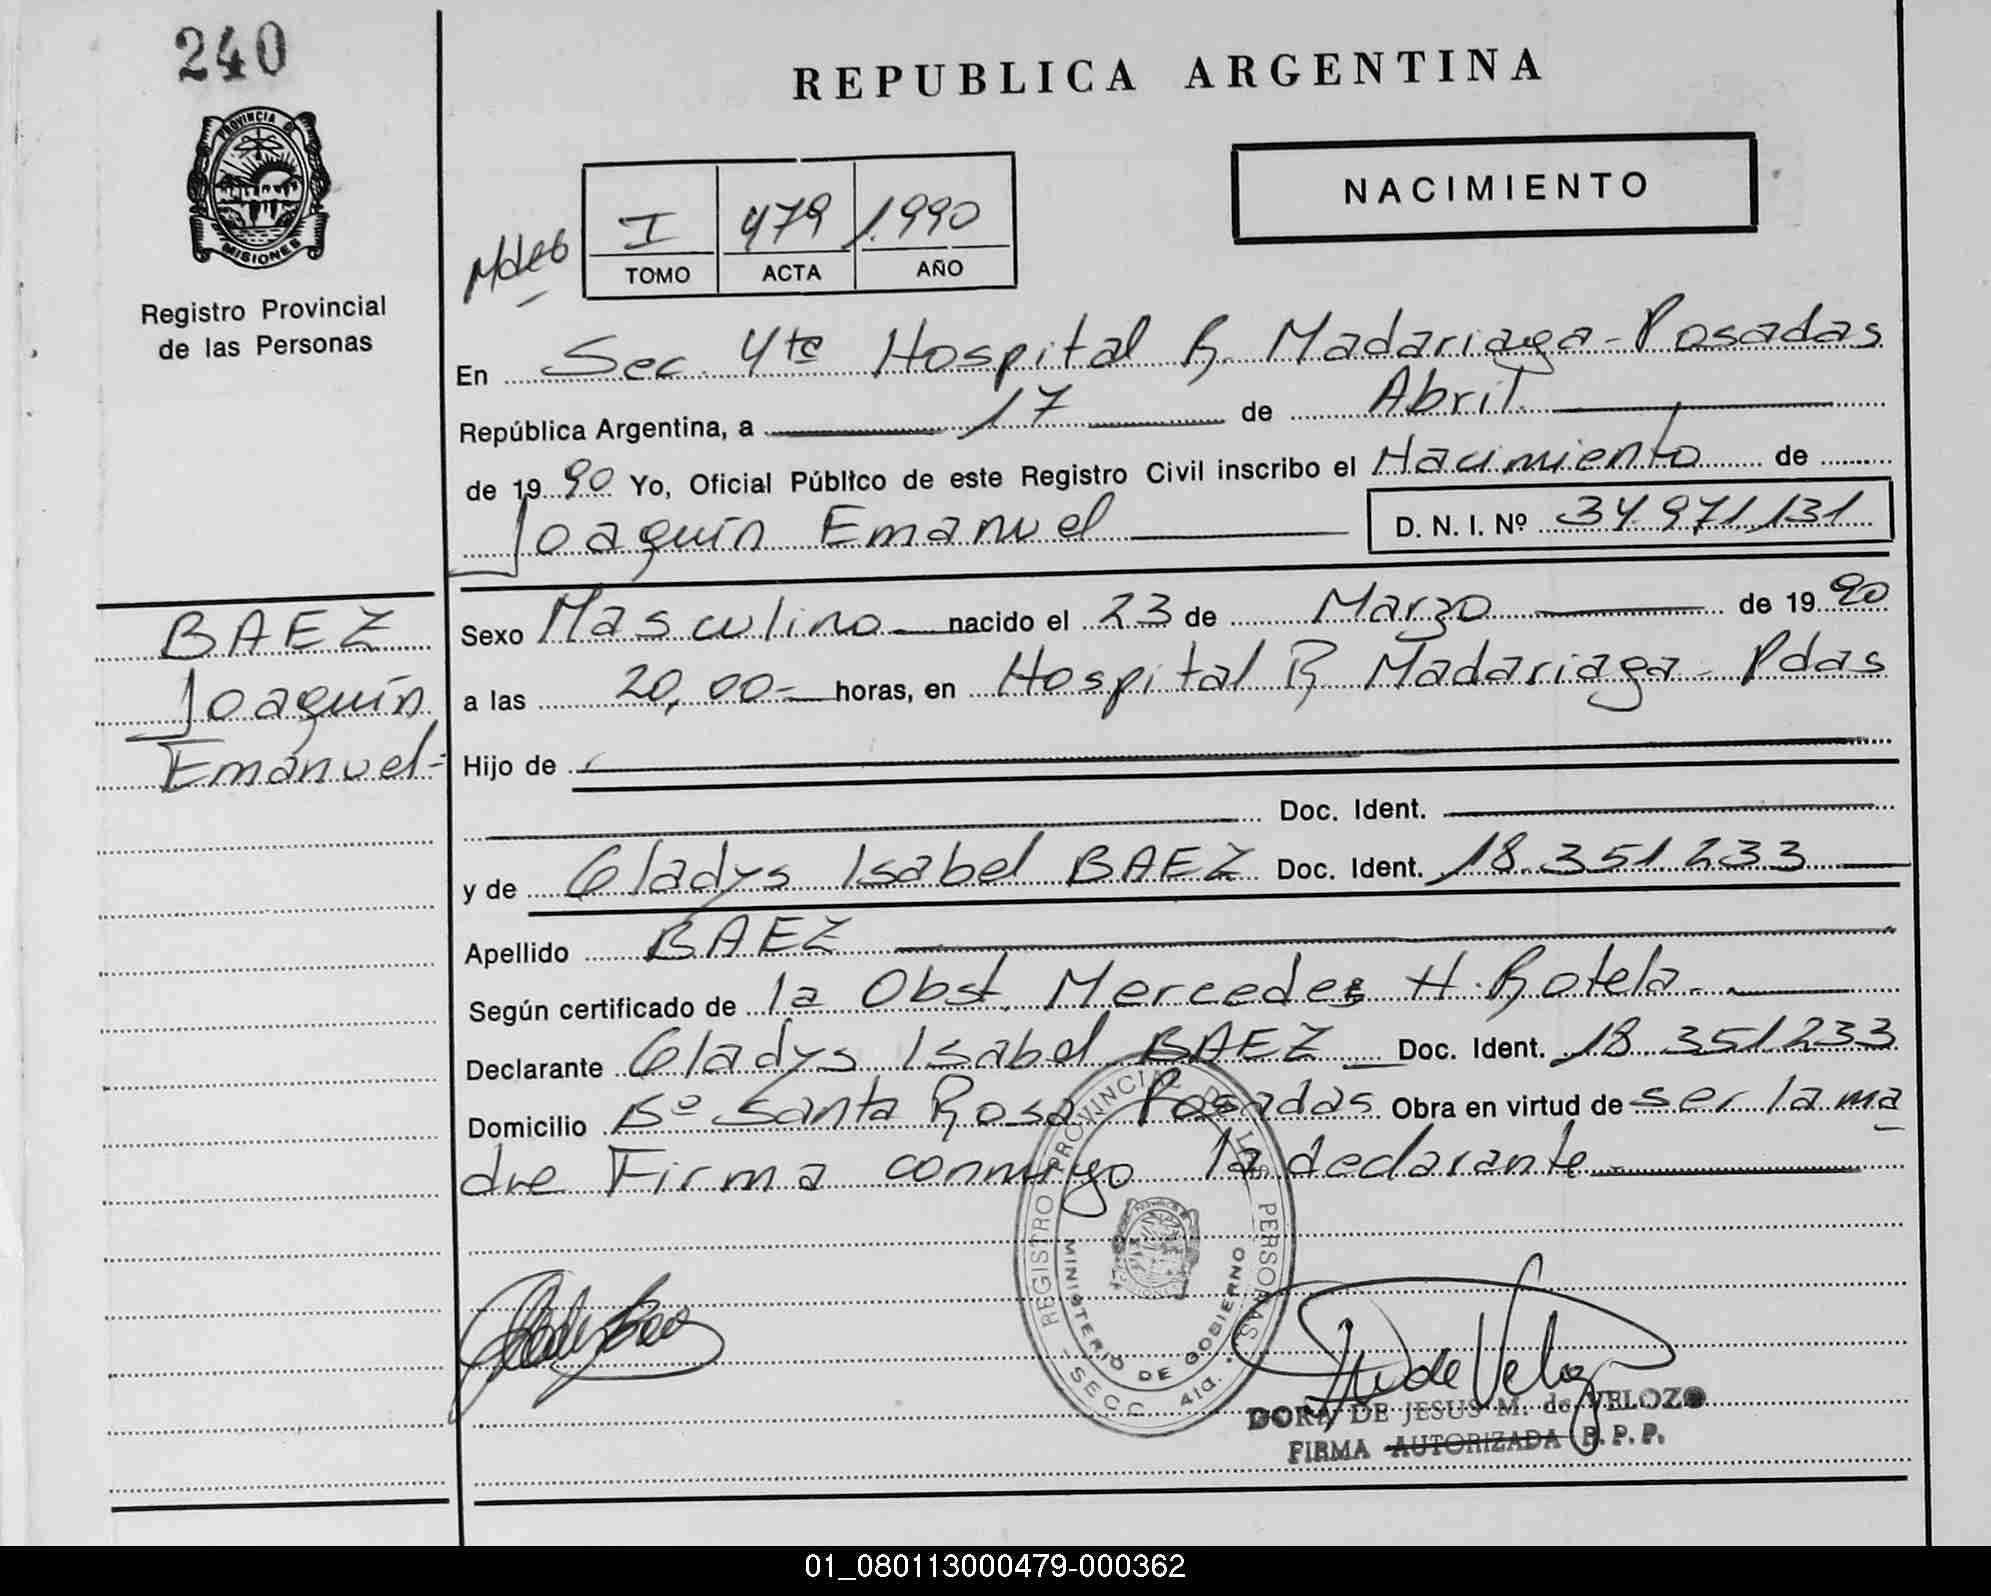 240
REPUBLICA ARGENTINA
PROVINCIA DE
MISIONES
Registro Provincial
de las Personas
NACIMIENTO
I 479 1.990
TOMO ACTA AÑO
En Sec. 4ta Hospital R. Madariaga - Posadas
República Argentina, a 17 de Abril
de 1990 Yo, Oficial Público de este Registro Civil inscribo el Nacimiento de
Joaquín Emanuel D. N. I. Nº 34.971.131
BAEZ
Joaquín
Emanuel
Sexo Masculino nacido el 23 de Marzo de 1990
a las 20,00 horas, en Hospital R Madariaga - Pdas
Hijo de
Doc. Ident.
y de Gladys Isabel BAEZ Doc. Ident. 18.351.233
Apellido BAEZ
Según certificado de la Obst. Mercedes H. Rotela
Declarante Gladys Isabel BAEZ Doc. Ident. 18.351233
Domicilio Bº Santa Rosa Posadas Obra en virtud de ser la ma
dre Firma conmigo la declarante
REGISTRO PROVINCIAL DE LAS PERSONAS
MINISTERIO DE GOBIERNO
- SECC. 4ta. -
DORA DE JESUS M. de VELOZO
FIRMA AUTORIZADA R. P. P.
01_080113000479-000362